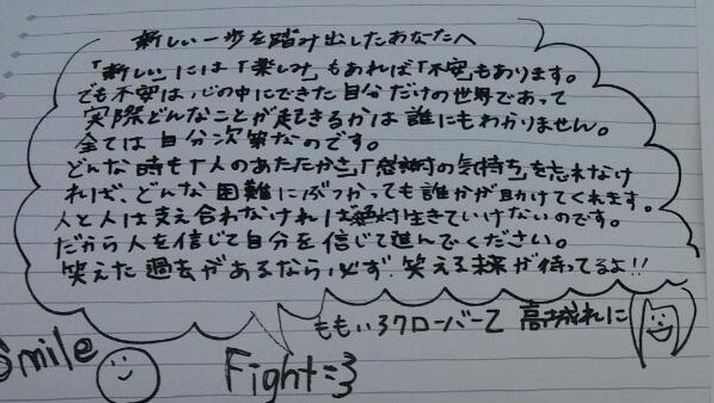 新しい一歩を踏み出したあなたへ
「新しい」には「楽しみ」もあれば「不安」もあります。
でも不安は、心の中にできた自分だけの世界であって
実際どんなことが起きるかは誰にもわかりません。
全ては自分次第なのです。
どんな時も「人のあたたかさ」「感謝の気持ち」を忘れなけ
れば、どんな困難にぶつかっても誰かが助けてくれます。
人と人は支え合わなければ絶対生きていけないのです。
だから人を信じて自分を信じて進んでください。
笑えた過去があるなら必ず笑える未来が待ってるよ!!
ももいろクローバーZ 高城れに
Smile
Fight=3